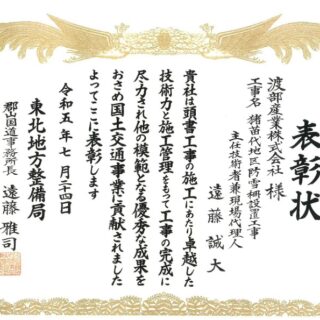 表彰状
渡部産業株式会社 様
工事名 猪苗代地区防雪柵設置工事
主任技術者兼現場代理人
遠藤 誠大
貴社は頭書工事の施工にあたり卓越した
技術力と施工管理をもって工事の完成に
尽力され他の模範となる優秀な成果を
おさめ国土交通事業に貢献されました
よってここに表彰します
令和五年七月二十四日
東北地方整備局
郡山国道事務所長 遠藤 雅司